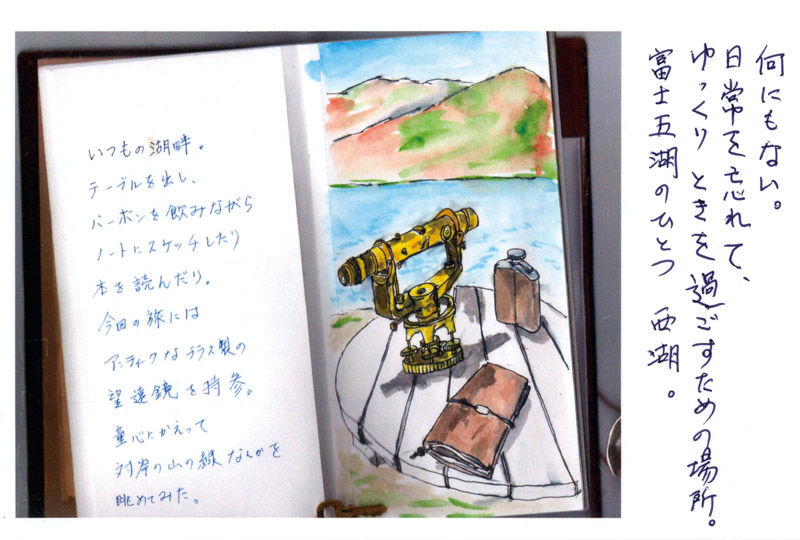 何にもない。
日常を忘れて、
ゆっくりときを過ごすための場所。
富士五湖のひとつ 西湖。
いつもの湖畔。
テーブルを出し、
バーボンを飲みながら
ノートにスケッチしたり
本を読んだり。
今回の旅には
アンティークなブラス製の
望遠鏡を持参。
童心にかえって
対岸の山の緑なんかを
眺めてみた。